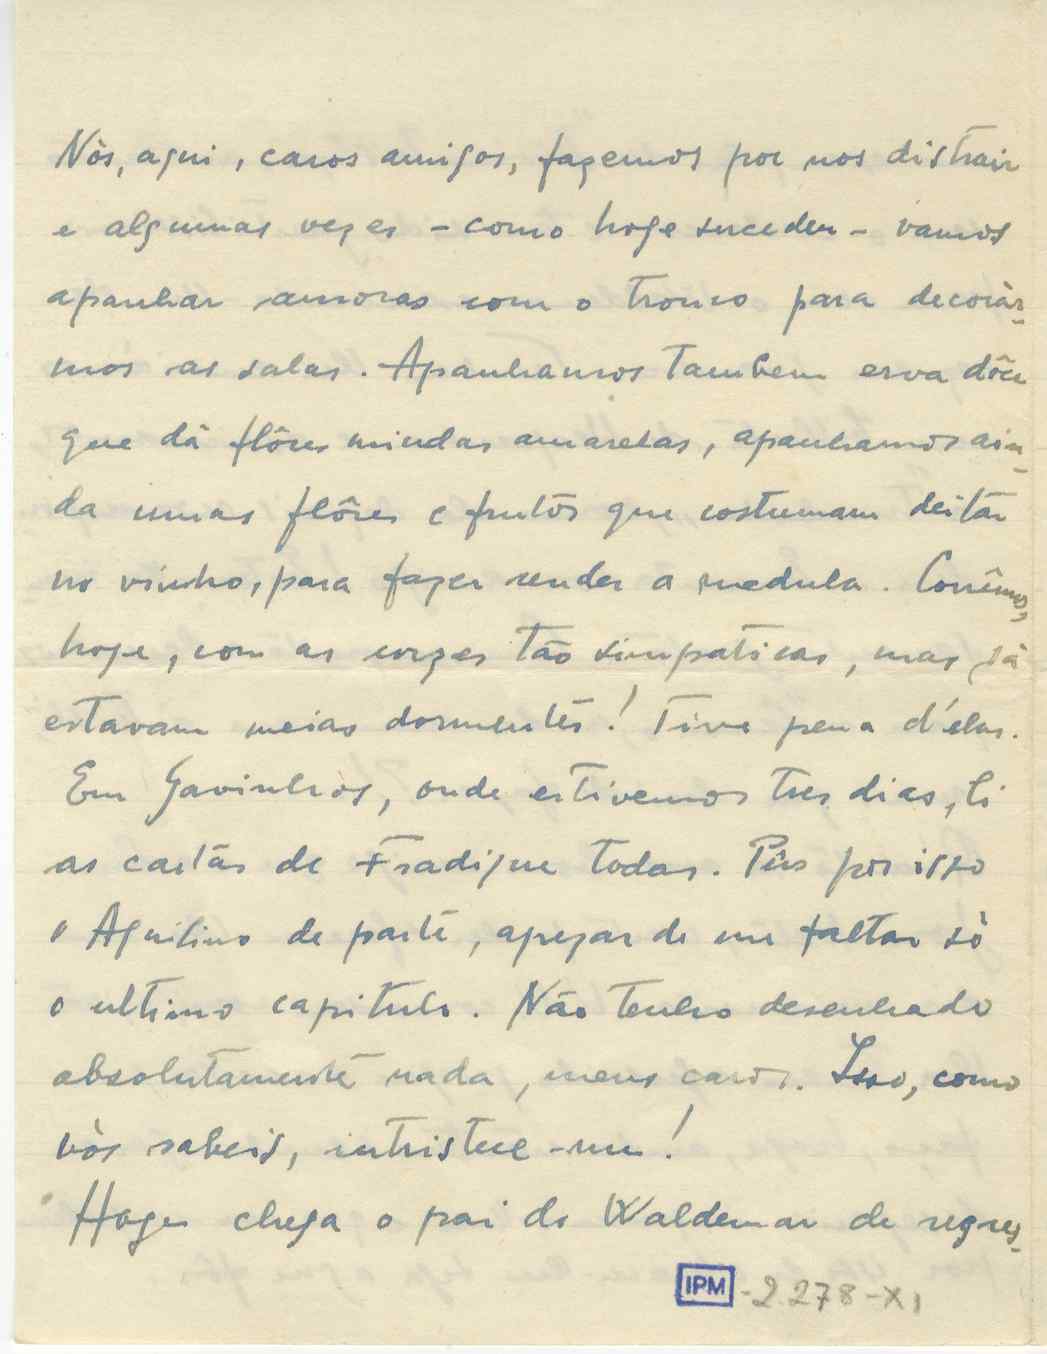 Nòs, aqui, caros amigos, fazemos por nos distrair
e algumas vezes – como hoje sucedeu – vamos
apanhar amoras com o tronco para decorar-
mos as salas. Apanhamos tambem erva dôce
que dá flôres miudas amarelas, apanhamos ain-
da umas flôres e frutos que costumam deitar
no vinho, para fazer render a medula. Corrêmos,
hoje, com as corças tão simpaticas, mas já
estavam meias dormentes! Tive pena d'elas.
Em Gavinhos, onde estivemos tres dias, li
as cartas de Fradique todas. Pús por isso
o Aquilino de parte, apezar de me faltar sò
o ultimo capitulo. Não tenho desenhado
absolutamente nada, meus caros. Isso, como
vòs sabeis, intristece-me!
Hoje chega o pai do Waldemar de regres-
IPM - 2.278-XI